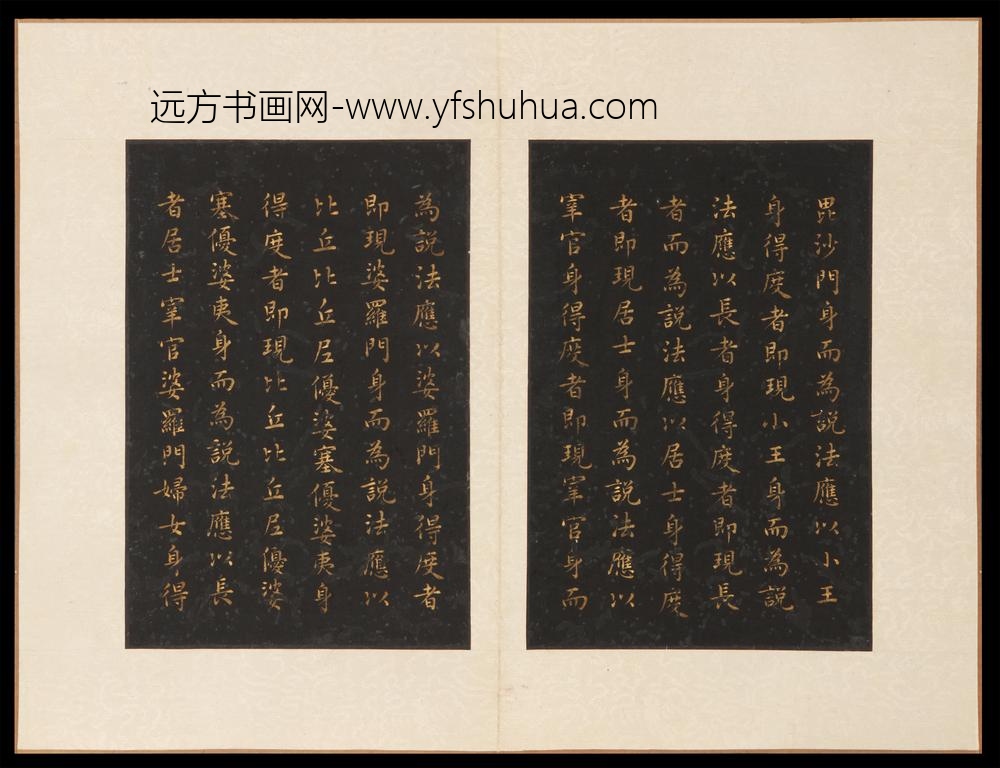 远方书画网-www.yfshuhua.com
毘沙門身而為説法應以小王
身得度者即現小王身而為説
法應以長者身得度者即現長
者而為説法應以居士身得度
者即現居士身而為説法應以
宰官身得度者即現宰官身而
為説法應以婆羅門身得度者
即現婆羅門身而為説法應以
比丘比丘尼優婆塞優婆夷身
得度者即現比丘比丘尼優婆
塞優婆夷身而為説法應以長
者居士宰官婆羅門婦女身得